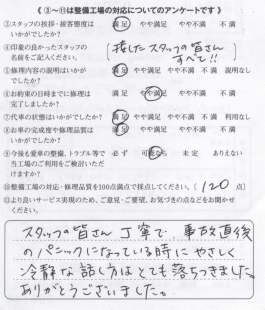 《 ③～⑪は整備工場の対応についてのアンケートです 》
③スタッフの挨拶・接客態度は 満 足 やや満足 やや不満 不 満
いかがでしたか?
④印象の良かったスタッフの 接したスタッフの皆さん
名前をご記入ください。 すべて!!
⑤修理内容の説明はいかが 満 足 やや満足 やや不満 不 満 説明なし
でしたか?
⑥お約束の日時までに修理は 満 足 やや満足 やや不満 不 満
完了しましたか?
⑦代車の状態はいかがでしたか? 満 足 やや満足 やや不満 不 満 利用なし
⑧お車の完成度や修理品質は 満 足 やや満足 やや不満 不 満
いかがでしたか?
⑨今後も愛車の整備、トラブル等で 必 ず 可能なら 未 定 ありえない
当工場のご利用をご検討いただ
けますか?
⑩整備工場の対応・修理品質を100点満点で採点してください。( 120 点)
⑪より良いサービス実現のため、ご意見・ご要望、お気づきの点などをお聞かせ
ください。
スタッフの皆さん丁寧で、事故直後
のパニックになっている時にやさしく
冷静な話し方はとても落ちつきました。
ありがとうございました。